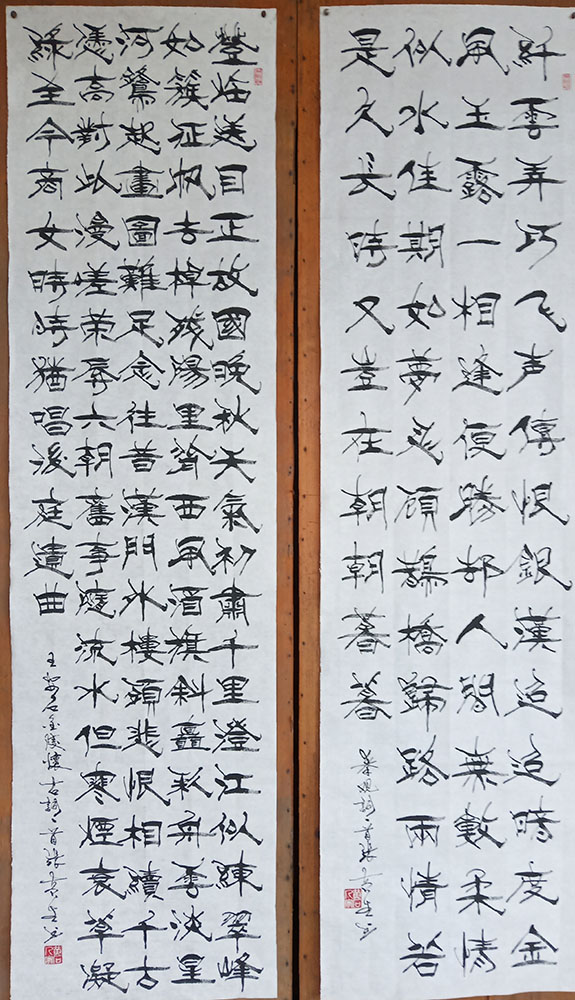 纤雲弄巧飞声傳恨銀漢迢迢時度金
風玉露一相逢便勝却人間無數柔情
似水佳期如夢忍顧鵲橋歸路兩情若
是久長時又豈在朝朝暮暮
秦觀詞一首張
登临送目正故國晚秋天氣初肅千里澄江似練翠峰
如簇征帆去棹殘陽里背西風酒旗斜矗彩舟雲淡星
河鷺起畫圖難足念往昔漢門外樓頭悲恨相續千古
憑高對此漫嗟榮辱六朝舊事隨流水但寒煙衰草凝
綠至今商女時時猶唱後庭遺曲
王安石金陵懷古詞一首張